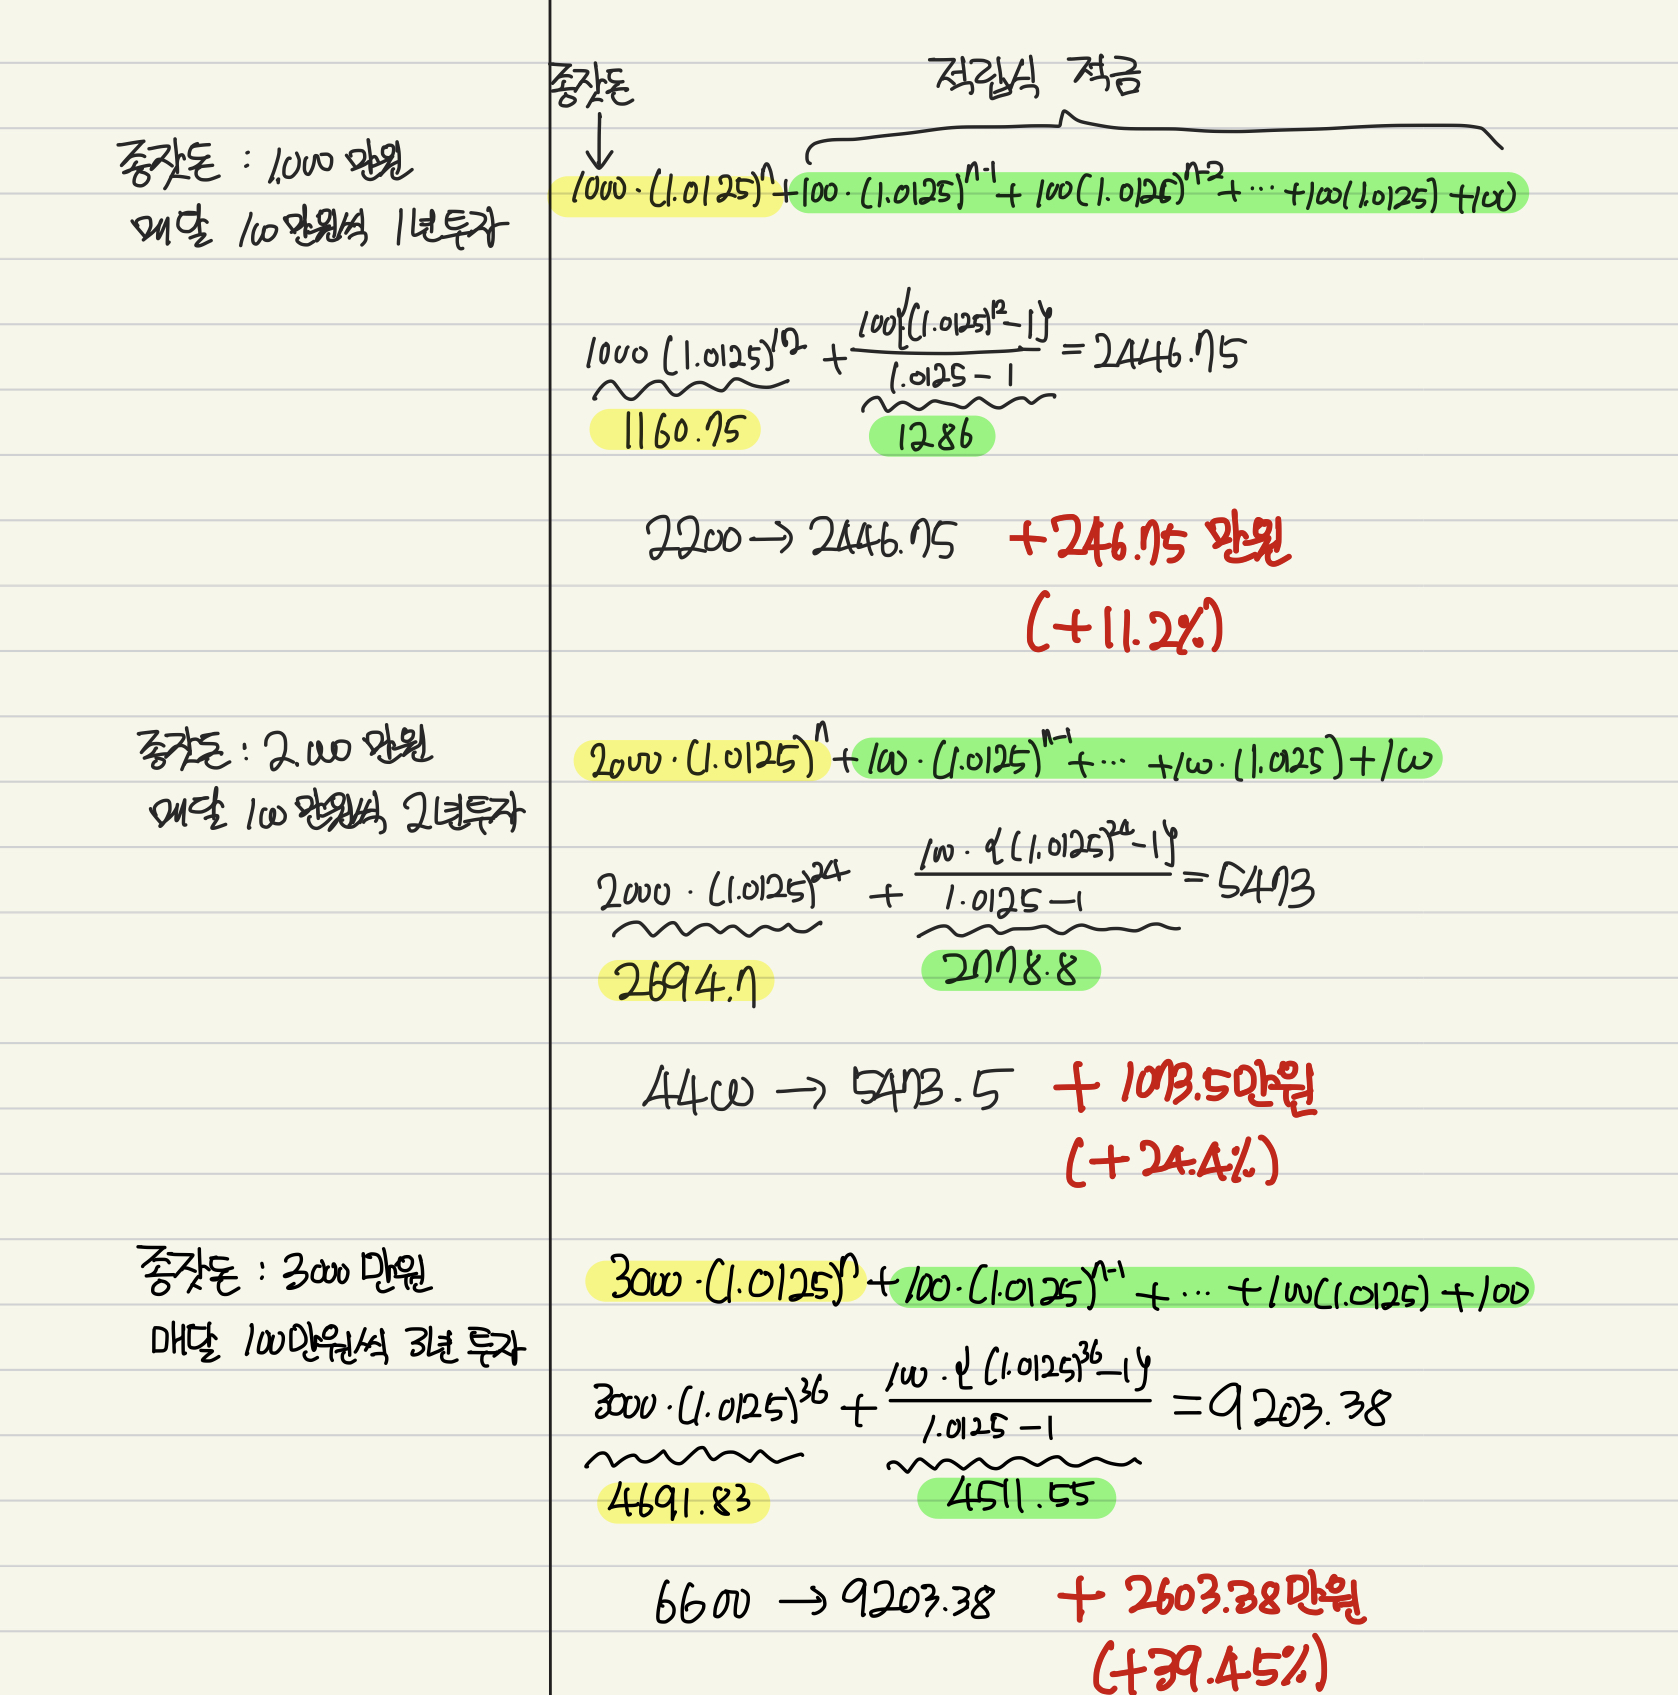 종잣돈
적립식 적금
종잣돈 : 1,000 만원
매달 100만원씩 1년투자
1000·(1.0125)^n+100·(1.0125)^n-1 + 100(1.0125)^n-2 + ··· +100(1.0125) +100)
1000 (1.0125)^12 + 100{(1.0125)^12 -1} / 1.0125 - 1 = 2446.75
1160.75
1286
2200 → 2446.75 + 246.75 만원
(+11.2%)
종잣돈 : 2,000 만원
매달 100만원씩 2년투자
2000·(1.0125)^n +100·(1.0125)^n-1 +··· +100·(1.0125)+100
2000·(1.0125)^24 + 100·{(1.0125)^24 -1} / 1.0125 -1 = 5473
2694.7
2778.8
4400 → 5473.5 + 1073.5만원
(+24.4%)
종잣돈 : 3000만원
매달 100만원씩 3년 투자
3000·(1.0125)^n+100·(1.0125)^n-1 + ··· +100(1.0125) +100
3000·(1.0125)^36 + 100·{(1.0125)^36 -1} / 1.0125 -1 =9203.38
4691.83
4511.55
6600 → 9203.38 + 2603.38만원
(+39.45%)